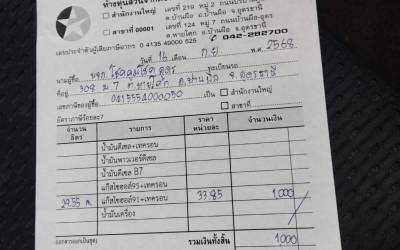 ห้างหุ้นส่วนจำกัด
สำนักงานใหญ่ เลขที่ 219 หมู่ 2 ถนนบ้านผือ
ต.บ้านผือ อ.บ้านผือ จ.อุดรธานี
สาขาที่ 00001 เลขที่ 124 หมู่ 7 ถนนบ้านผือ-อุดร
ต.หายโศก อ.บ้านผือ จ.อุดรธานี
เลขประจำตัวผู้เสียภาษีอากร 0 4135 49000 525 042-282700
วันที่ 16 เดือน ก.ย. พ.ศ. 2568
นามผู้ซื้อ หจก. โชคอุดมโชค อุดร ทะเบียนรถ
ที่อยู่ 308 ม.7 ต.หายโศก อ.บ้านผือ จ.อุดรธานี
เลขภาษีของผู้ซื้อ 0415554000050 เป็น สำนักงานใหญ่
อัตราภาษีร้อยละ 7 สาขาที่
จำนวนลิตร รายการ ราคาหน่วยละ จำนวนเงิน
น้ำมันดีเซล+เทครอน
น้ำมันพาวเวอร์ดีเซล
น้ำมันดีเซล B7
แก๊สโซฮอล์95+เทครอน
29.55 ล. แก๊สโซฮอล์91+เทครอน 33.85 1,000
น้ำมันเครื่อง
(เอกสารออกเป็นชุด) รวมเงินทั้งสิ้น 1,000